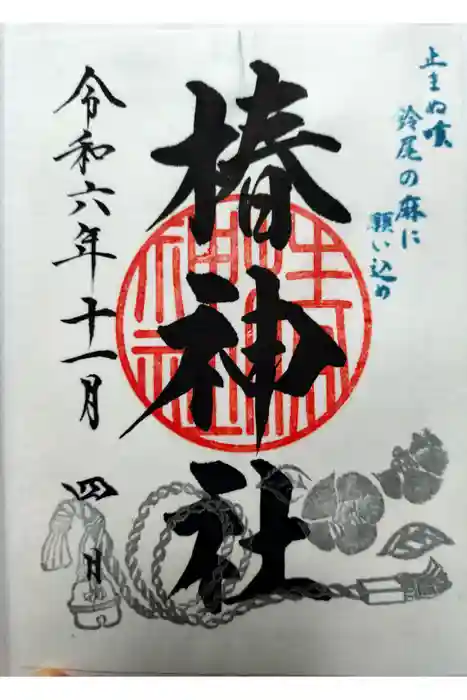 止まぬ咳
鈴尾の麻に
願い込め
椿神社
令和六年十一月
四日